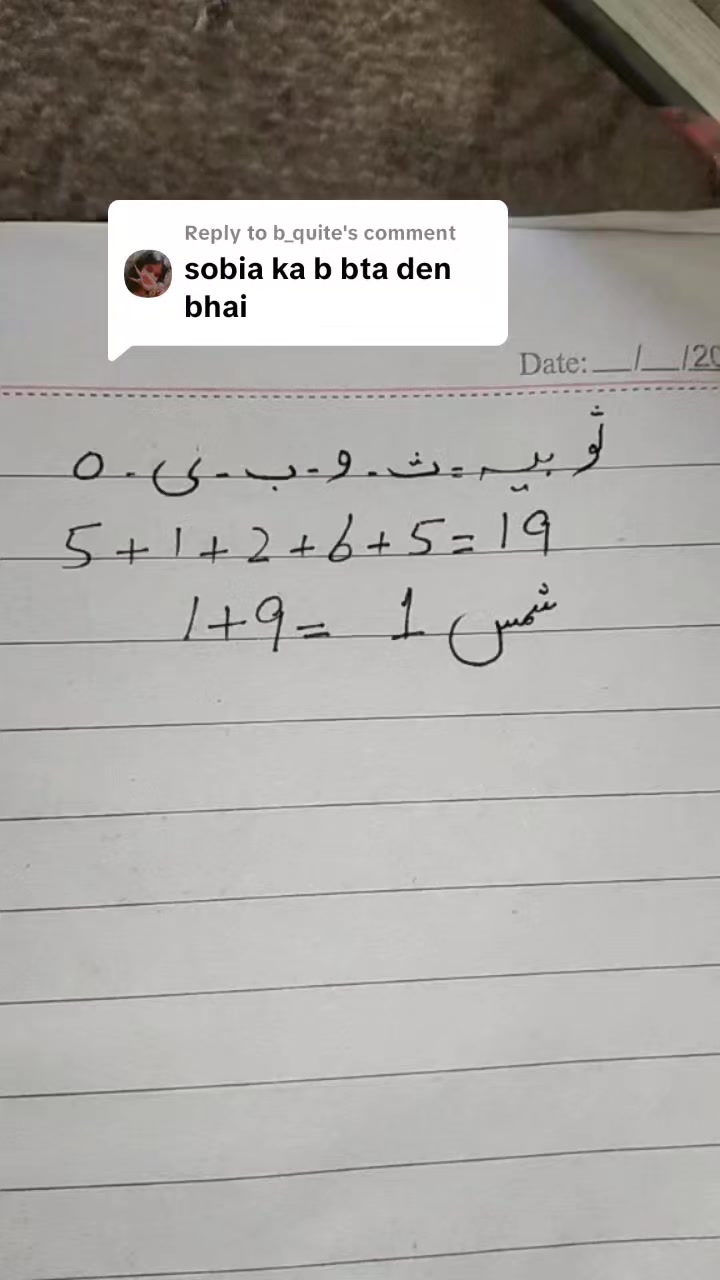 Reply to b_quite's comment
sobia ka b bta den
bhai
Date:__/__/20
ثوبیہ = ث - و - ب - ی - ہ
5+1+2+6+5=19
1+9= 1 شمس